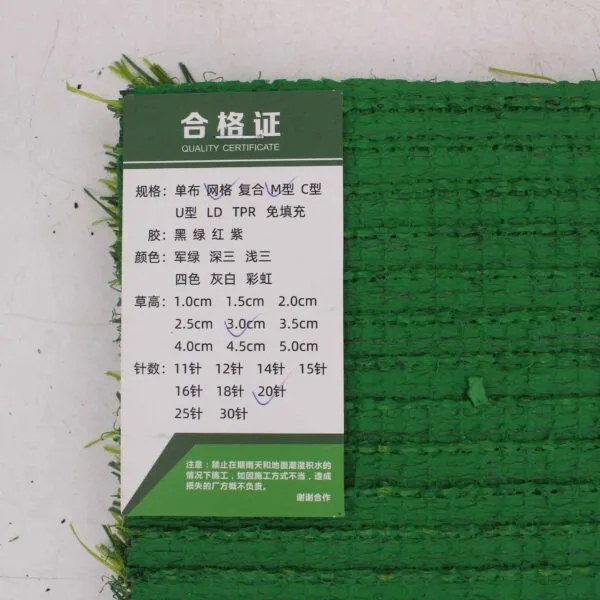 合格证
QUALITY CERTIFICATE
规格：单布 网格 复合 M型 C型
U型 LD TPR 免填充
胶：黑 绿 红 紫
颜色：军绿 深三 浅三
四色 灰白 彩虹
草高：1.0cm 1.5cm 2.0cm
2.5cm 3.0cm 3.5cm
4.0cm 4.5cm 5.0cm
针数：11针 12针 14针 15针
16针 18针 20针
25针 30针
注意：禁止在晴雨天和地面潮湿积水的
情况下施工，如因施工方式不当，造成
损失的厂方概不负责。
谢谢合作